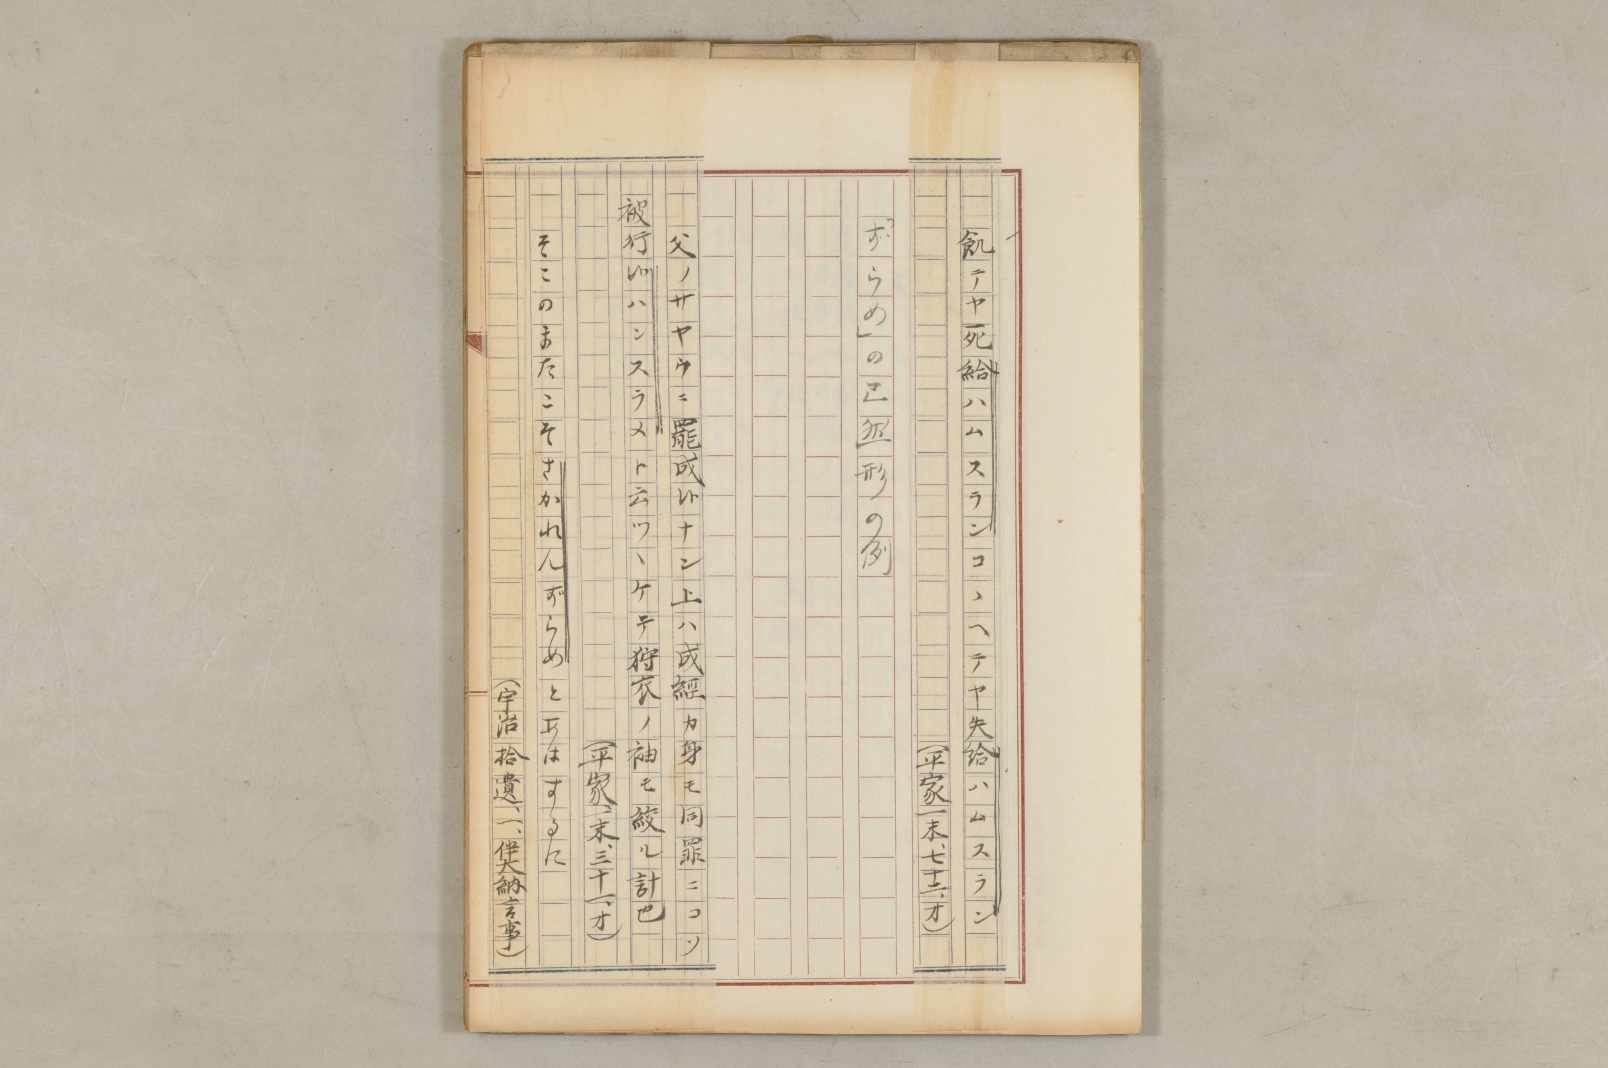 飢テヤ死給ハムスランコヽヘテヤ失給ハムスラン
(平家一末、七十二、オ)
「ずらめ」の已然形の例
父ノサヤウニ罷成候ナン上ハ成經カ身モ同罪ニコソ
被行候ハンスラメト云ツヽケテ狩衣ノ袖モ絞ル計也
(平家、一末、三十一、オ)
そこのまたこそさかれんずらめとあはするに
(宇治拾遺、一、伴大納言事)